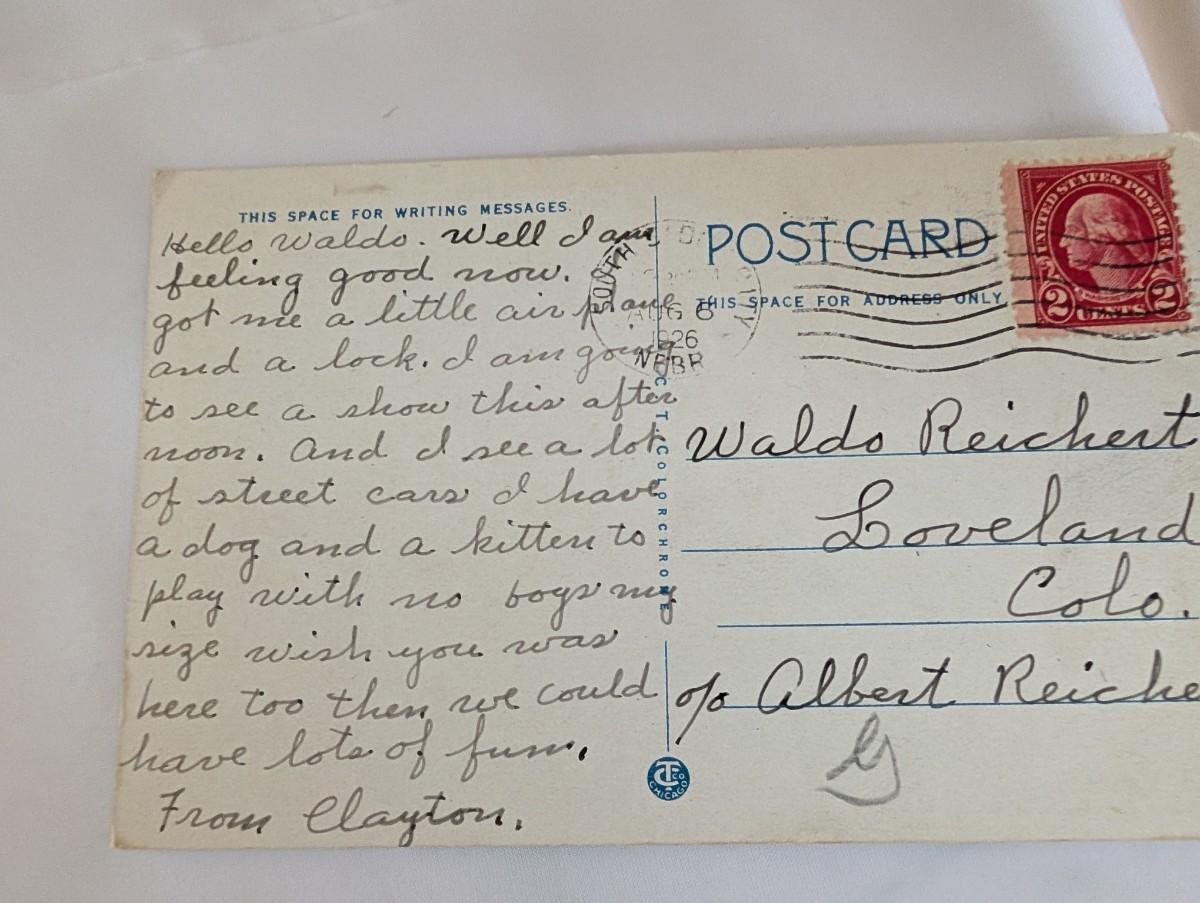 THIS SPACE FOR WRITING MESSAGES.
Hello Waldo. Well I am
feeling good now.
got me a little air plane
and a lock. I am going
to see a show this after
noon. And I see a lot
of street cars I have
a dog and a kitten to
play with no boys my
size wish you was
here too then we could
have lots of fun.
From Clayton.
C.T. COLORCHROME
CT CO
CHICAGO
SOUTH CITY
AUG 6
1926
NEBR
POST CARD
THIS SPACE FOR ADDRESS ONLY
UNITED STATES POSTAGE
2 CENTS 2
Waldo Reichert
Loveland
Colo.
c/o Albert Reiche